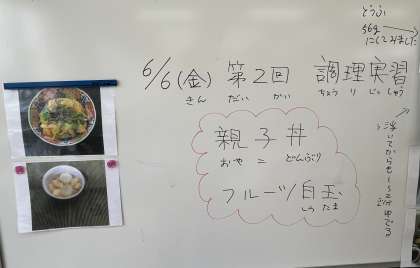 とうふ
56g
にしてみました
6/6(金) 第2回 調理実習
きん だい かい ちょう り じっ しゅう
親子丼
おや こ どんぶり
フルーツ白玉
しら たま
浮いてから